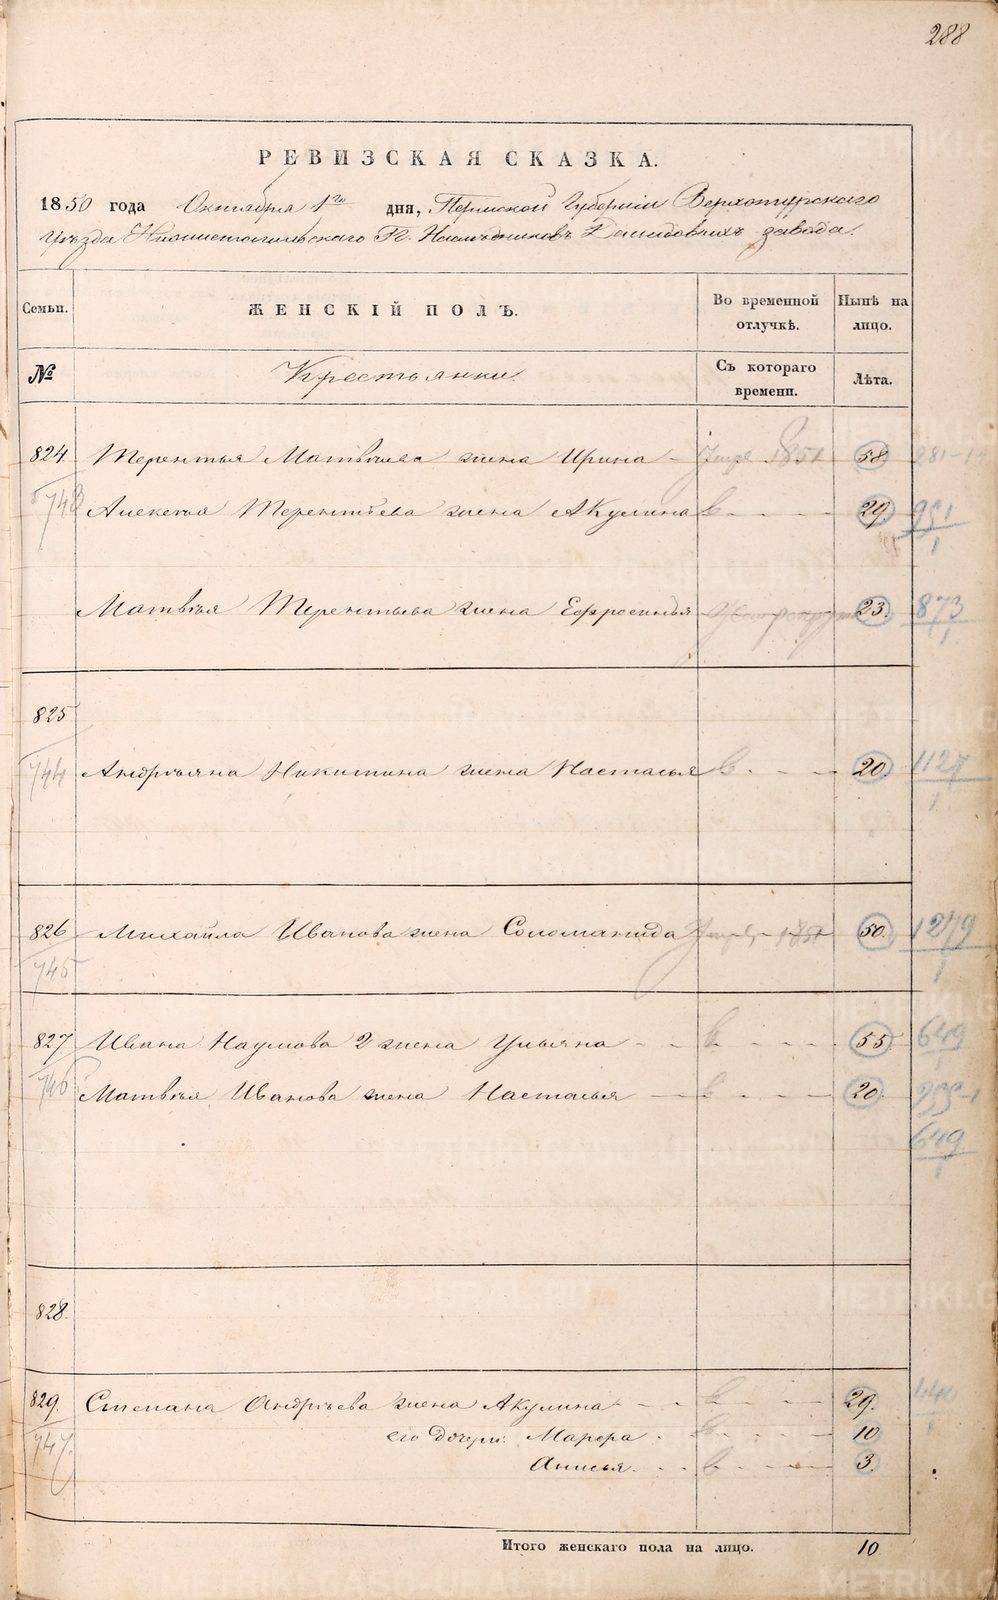 288
РЕВИЗСКАЯ СКАЗКА.
1850 года Октября 1го дня, Пермской Губернии Верхотурскаго
уѣзда Нижнетагильскаго Гг. Наслѣдниковъ Демидовыхъ завода.
Семьи. ЖЕНСКІЙ ПОЛЪ. Во временной отлучкѣ. Нынѣ на лицо.
№ Крестьянки. Съ котораго времени. Лѣта.
824. Терентья Матвѣева жена Ирина 1851 58.
743 Алексѣя Терентьева жена Акулина 29. 951
1
Матвѣя Терентьева жена Ефросинья 23. 873
1
825
744 Андрѣяна Никитина жена Настасья 20. 1127
1
826 Михайла Иванова жена Соломанида 1851 50. 1279
745 1
827 Ивана Наумова 2 жена Ульяна 55. 649
746 Матвѣя Иванова жена Настасья 20.
649
1
828.
829. Степана Андрѣева жена Акулина 29.
747. его дочери: Марфа 10
Анисья 3.
Итого женскаго пола на лицо. 10
METRIKI.GASO-URAL.RU